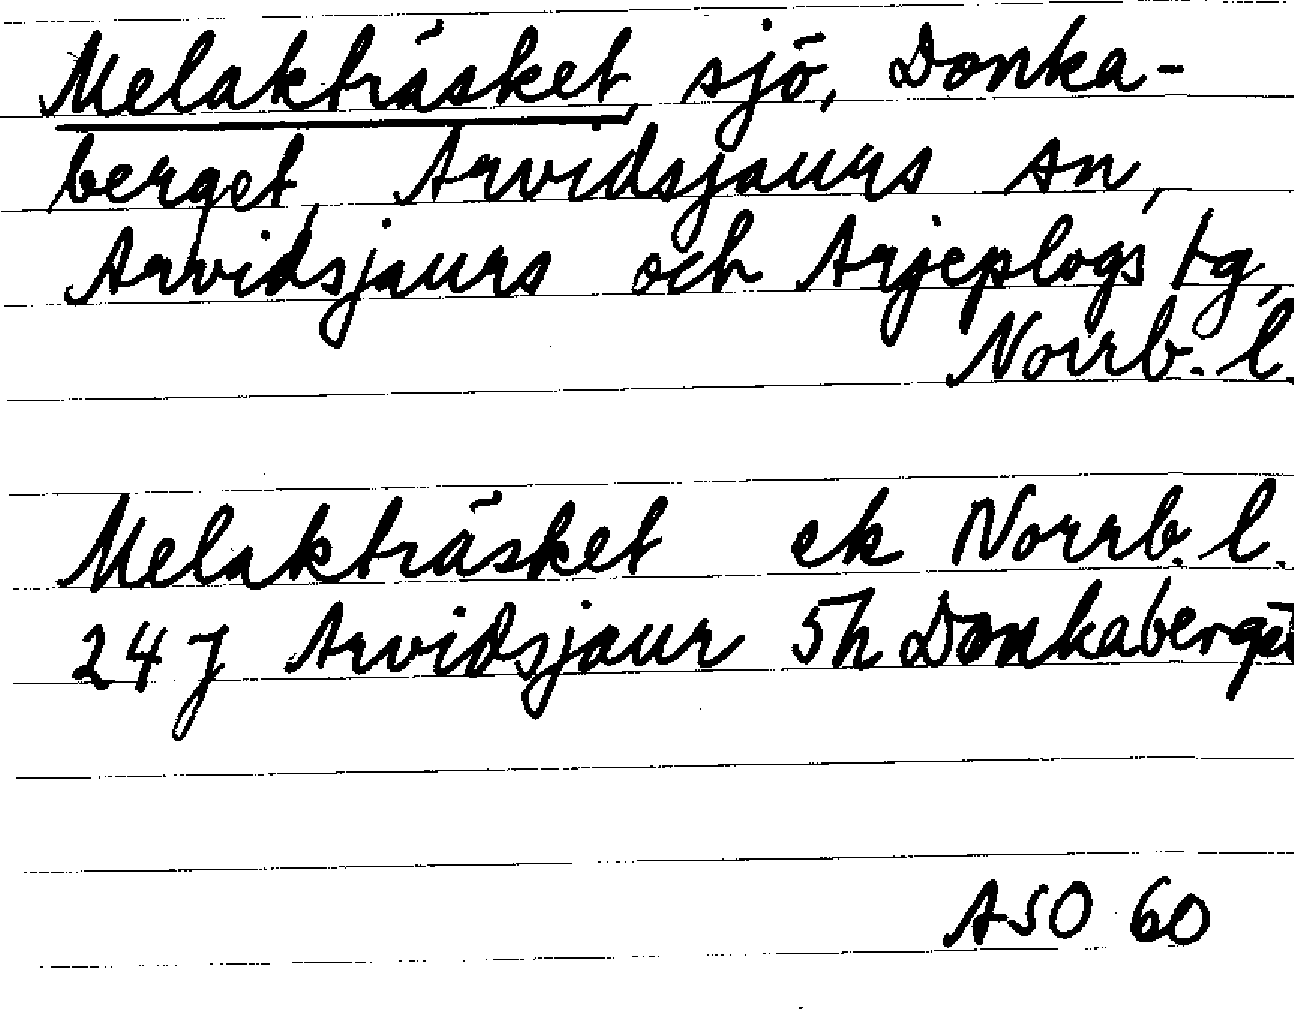 Melakträsket, sjö, Donka-
berget, Arvidsjaurs sn,
Arvidsjaurs och Arjeplogs tg,
Norrb. l.
Melakträsket ek Norrb. l.
24 J Arvidsjaur 5h Donkaberget
ASO 60